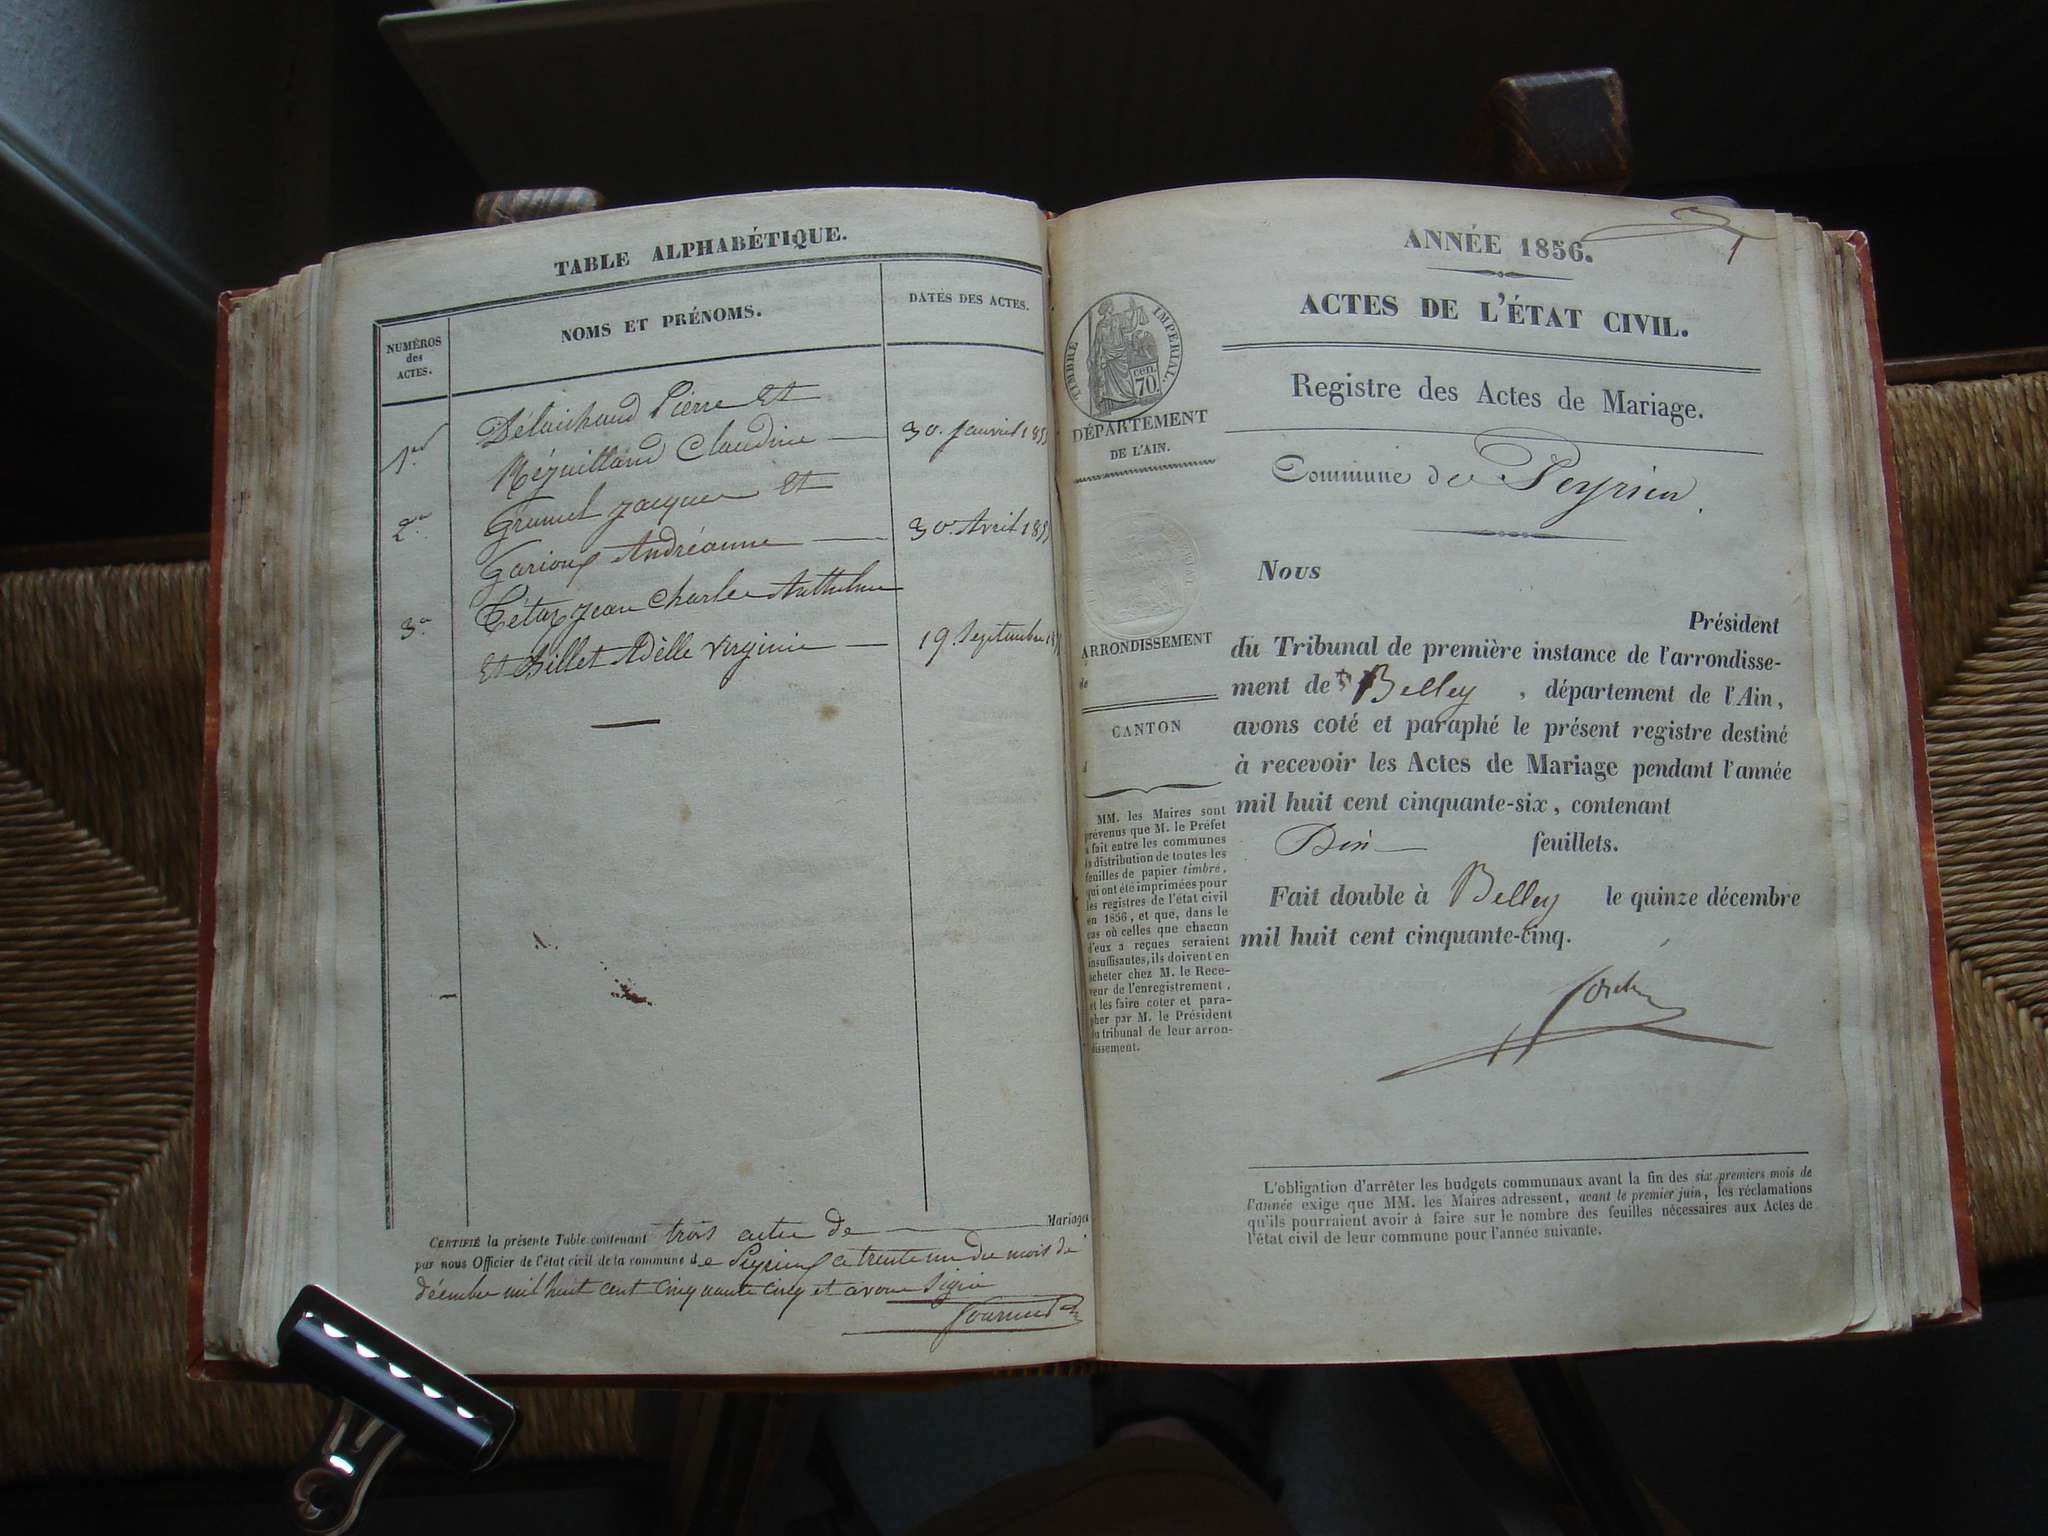 TABLE ALPHABÉTIQUE.
NUMÉROS
des
ACTES.
NOMS ET PRÉNOMS.
DATES DES ACTES.
1er
Pierre et
Claudine
30. Janvier 185
2e
Grumel Jacques et
Andréanne
30. Avril 185
3e
Tétaz Jean Charles Anthelme
et Billet Adèlle Virginie
19. Septembre 18
CERTIFIÉ la présente Table contenant trois actes de Mariages
par nous Officier de l'état civil de la commune de Peyrieux ce trente un du mois de
décembre mil huit cent cinquante cinq et avons signé
ANNÉE 1856.
1
ACTES DE L'ÉTAT CIVIL.
TIMBRE IMPÉRIAL.
70 cen.
DÉPARTEMENT
DE L'AIN.
ARRONDISSEMENT
de
CANTON
d
MM. les Maires sont
prévenus que M. le Préfet
a fait entre les communes
la distribution de toutes les
feuilles de papier timbré,
qui ont été imprimées pour
les registres de l'état civil
en 1856, et que, dans le
cas où celles que chacun
d'eux a reçues seraient
insuffisantes, ils doivent en
acheter chez M. le Rece-
veur de l'enregistrement,
et les faire coter et para-
pher par M. le Président
du tribunal de leur arron-
dissement.
Registre des Actes de Mariage.
Commune de Peyrieu.
Nous
Président
du Tribunal de première instance de l'arrondisse-
ment de Belley, département de l'Ain,
avons coté et paraphé le présent registre destiné
à recevoir les Actes de Mariage pendant l'année
mil huit cent cinquante-six, contenant
feuillets.
Fait double à Belley le quinze décembre
mil huit cent cinquante-cinq.
L'obligation d'arrêter les budgets communaux avant la fin des six premiers mois de
l'année exige que MM. les Maires adressent, avant le premier juin, les réclamations
qu'ils pourraient avoir à faire sur le nombre des feuilles nécessaires aux Actes de
l'état civil de leur commune pour l'année suivante.